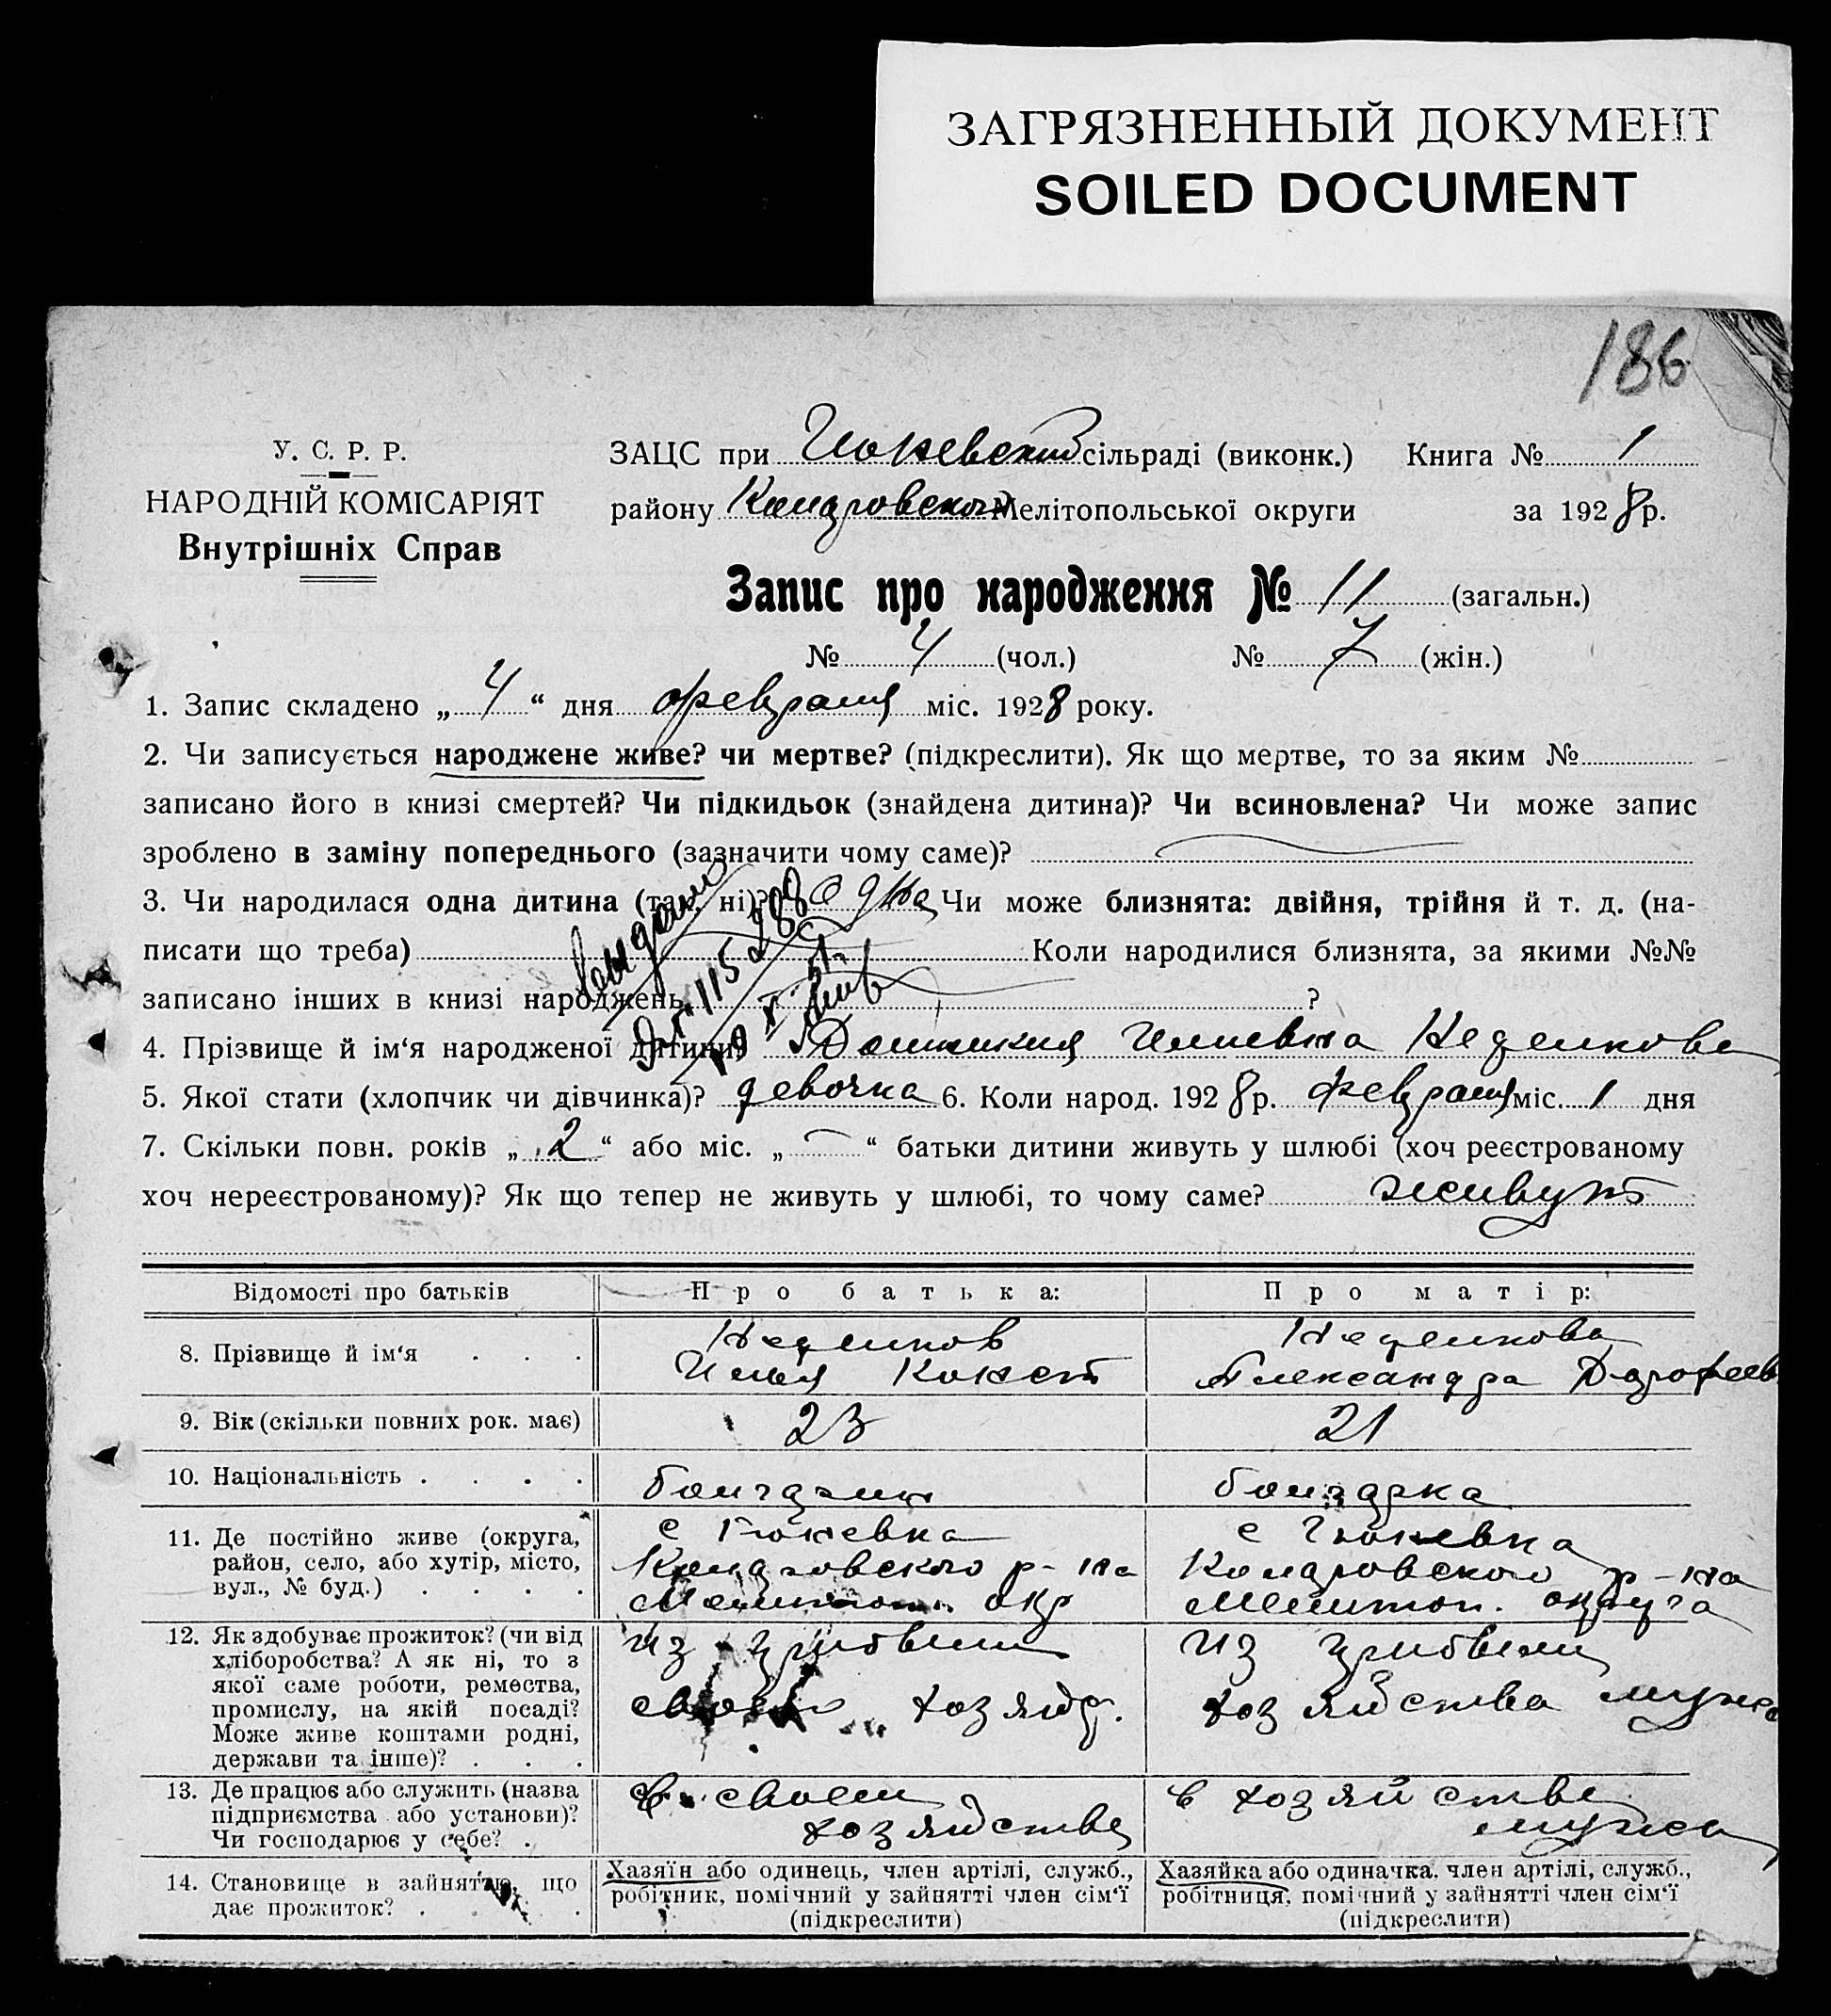 ЗАГРЯЗНЕННЫЙ ДОКУМЕНТ
SOILED DOCUMENT
186
У. С. Р. Р.
НАРОДНІЙ КОМІСАРІЯТ
Внутрішніх Справ
ЗАЦС при сільраді (виконк.) Книга № 1
району Мелітопольської округи за 1928 р.
Запис про народження № 11 (загальн.)
№ 4 (чол.) № 7 (жін.)
1. Запис складено „ 4 “ дня февраля міс. 1928 року.
2. Чи записується народжене живе? чи мертве? (підкреслити). Як що мертве, то за яким №
записано його в книзі смертей? Чи підкидьок (знайдена дитина)? Чи всиновлена? Чи може запис
зроблено в заміну попереднього (зазначити чому саме)?
3. Чи народилася одна дитина (так, ні)? одна Чи може близнята: двійня, трійня й т. д. (на-
писати що треба) Коли народилися близнята, за якими №№
записано інших в книзі народжень ?
4. Прізвище й ім‘я народженої дитини?
5. Якої стати (хлопчик чи дівчинка)? девочка 6. Коли народ. 1928 р. февраля міс. 1 дня
7. Скільки повн. років „ 2 “ або міс. „ — “ батьки дитини живуть у шлюбі (хоч реєстрованому
хоч нереєстрованому)? Як що тепер не живуть у шлюбі, то чому саме? живут
Відомості про батьків Про батька: Про матір:
8. Прізвище й ім‘я
Илья Александра
9. Вік (скільки повних рок. має) 23 21
10. Національність . . . . болгарин болгарка
11. Де постійно живе (округа, район, село, або хутір, місто, вул., № буд.) . . . .
с р-на окр
с р-на Мелитоп. округа
12. Як здобуває прожиток? (чи від хліборобства? А як ні, то з якої саме роботи, ремества, промислу, на якій посаді? Може живе коштами родні, держави та інше)? . . .
из прибыли хозяйс.
из прибыли хозяйства мужа
13. Де працює або служить (назва підприємства або установи)? Чи господарює у себе? .
в своем хозяйстве
в хозяйстве мужа
14. Становище в зайняттю, що дає прожиток? . . .
Хазяїн або одинець, член артілі, служб., робітник, помічний у зайнятті член сім‘ї (підкреслити)
Хазяйка або одиначка, член артілі, служб., робітниця, помічний у зайнятті член сім‘ї (підкреслити)